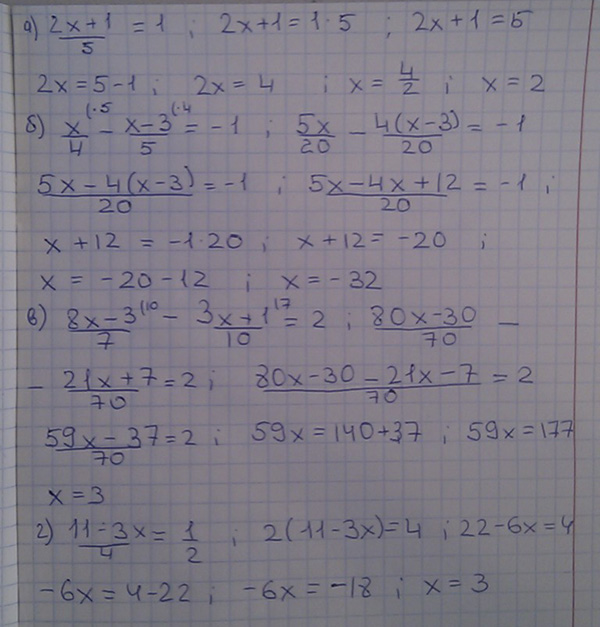 а) (2x+1)/5 = 1 ; 2x+1=1·5 ; 2x+1=5
2x=5-1 ; 2x=4 ; x=4/2 ; x=2
б) x/4 (·5 - (x-3)/5 (·4 = -1 ; 5x/20 - 4(x-3)/20 = -1
(5x-4(x-3))/20 = -1 ; (5x-4x+12)/20 = -1 ;
x+12 = -1·20 ; x+12 = -20 ;
x = -20-12 ; x = -32
в) (8x-3)/7 (10 - (3x+1)/10 (7 = 2 ; (80x-30)/70 -
- (21x+7)/70 = 2 ; (80x-30-21x-7)/70 = 2
(59x-37)/70 = 2 ; 59x=140+37 ; 59x=177
x=3
г) (11-3x)/4 = 1/2 ; 2(11-3x)=4 ; 22-6x=4
-6x=4-22 ; -6x=-18 ; x=3